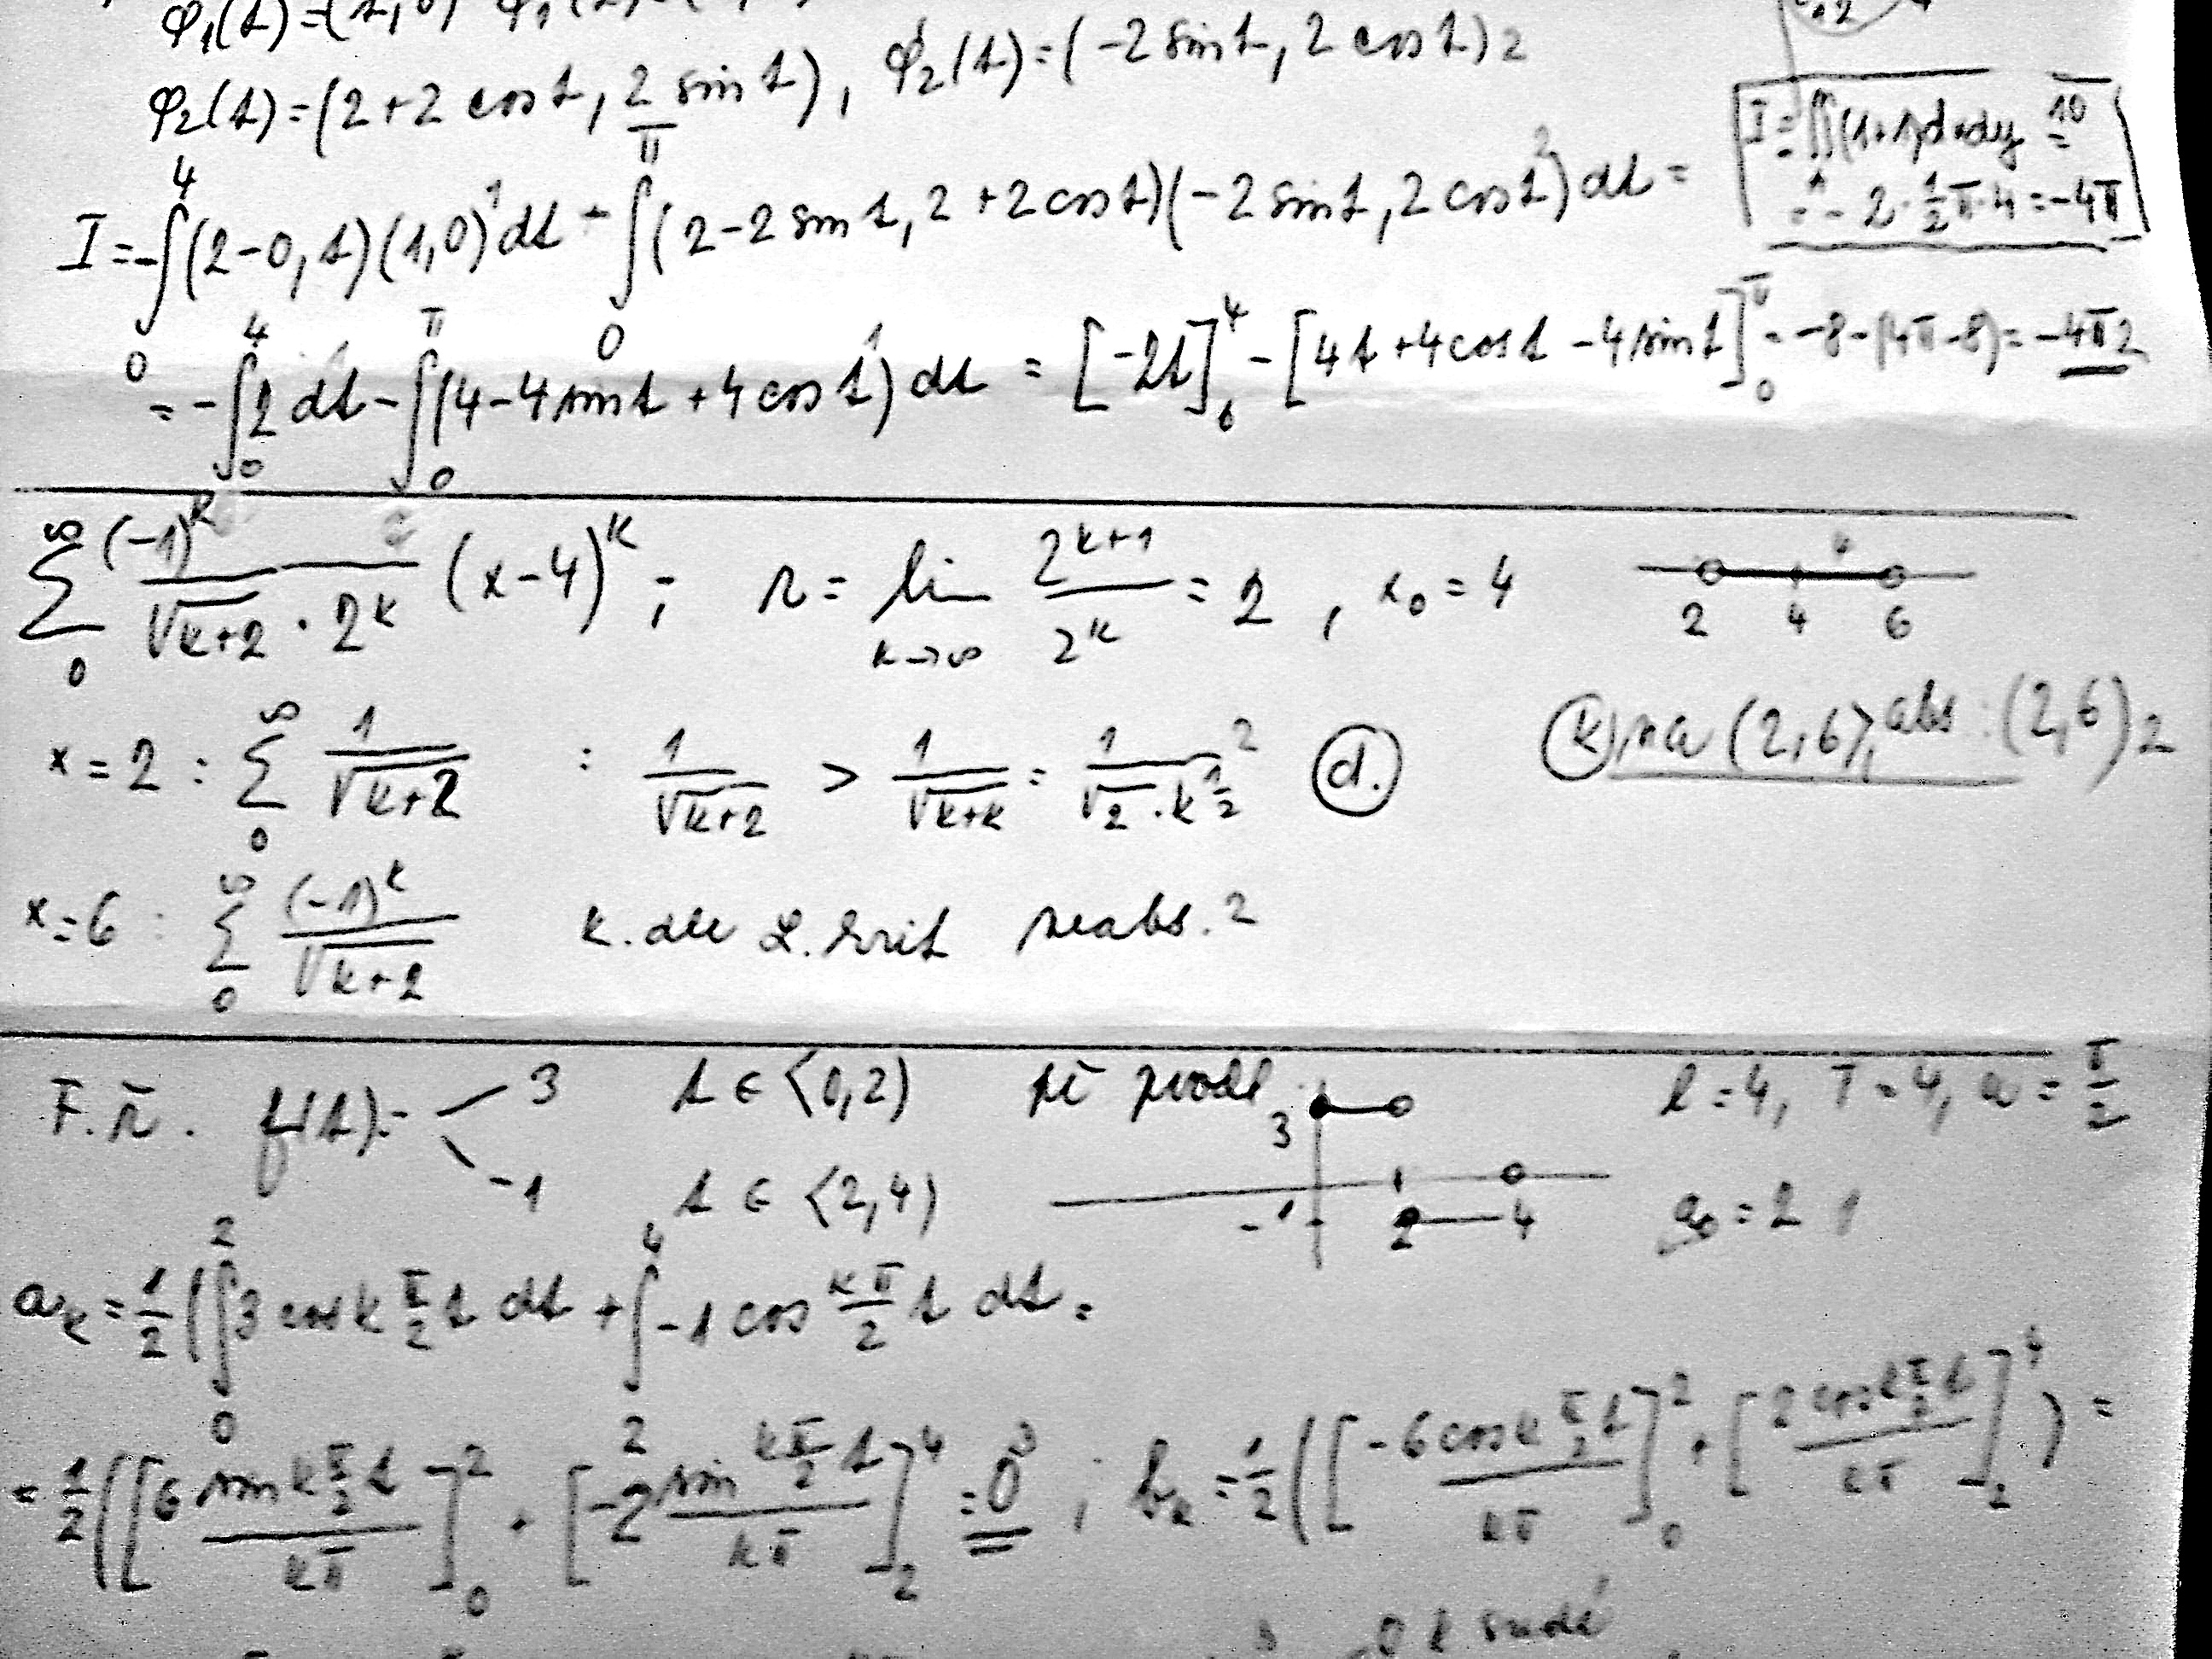 φ₁(t)=(t,0)
φ₂(t)=(2+2 cos t, 2 sin t), φ₂'(t)=(-2 sin t, 2 cos t) 2
I = -∫₀⁴ (2-0, t)(1,0)¹ dt - ∫₀^π (2-2 sin t, 2+2 cos t)(-2 sin t, 2 cos t)² dt =
I = ∬(1+1)dxdy = 10
= -2·½π·4 = -4π
= -∫₀⁴ 2 dt - ∫₀^π (4-4 sin t + 4 cos t)¹ dt = [-2t]₀⁴ - [4t + 4 cos t - 4 sin t]₀^π = -8-(4π-8) = -4π 2
∑₀^∞ (-1)^k / (√(k+2) · 2^k) (x-4)^k ; r = lim_{k→∞} 2^(k+1) / 2^k = 2 , x₀ = 4
2 4 6
x=2 : ∑₀^∞ 1/√(k+2) : 1/√(k+2) > 1/√(k+k) = 1/(√2 · k^½) 2 (d.)
(k) na (2,6⟩, abs : (2,6) 2
x=6 : ∑₀^∞ (-1)^k / √(k+2) k. dle L. krit neabs. 2
F.ř. f(t) = 3 t ∈ ⟨0,2) 3 l=4, T=4, ω = π/2
-1 t ∈ ⟨2,4) -1 2 4 a₀ = 2 1
a_k = ½(∫₀² 3 cos k π/2 t dt + ∫₂⁴ -1 cos kπ/2 t dt =
= ½([6 sin k π/2 t / kπ]₀² + [-2 sin kπ/2 t / kπ]₂⁴ = 0 ; b_k = ½([-6 cos k π/2 t / kπ]₀² + [2 cos k π/2 t / kπ]₂⁴) =
0 k sudé